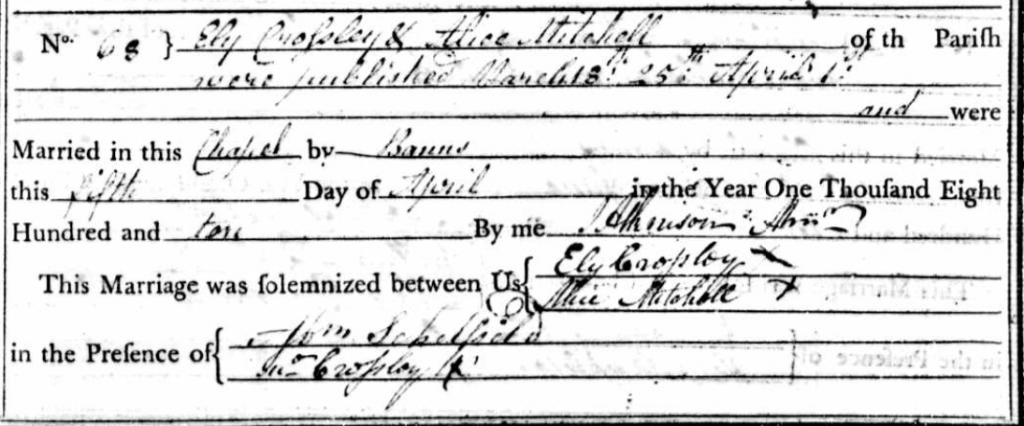 No. 68 } Ely Croſsley & Alice Mitchell of th Pariſh
were published March 18th 25th April 1st
and were
Married in this Chapel by Banns
this fifth Day of April in the Year One Thouſand Eight
Hundred and ten By me
This Marriage was ſolemnized between Us { Ely Croſsley X
Alice Mitchell X
in the Preſence of {
Jno Croſsley X